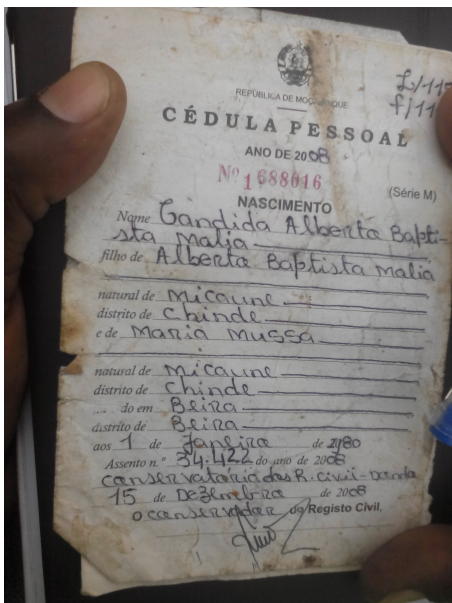 REPÚBLICA DE MOÇAMBIQUE
L/117
f/11
CÉDULA PESSOAL
ANO DE 2008
Nº 1688016
(Série M)
NASCIMENTO
Nome Candida Alberta Bapti-
sta Malia
filho de Alberta Baptista Malia
natural de Micaune
distrito de Chinde
e de Maria Mussa
natural de Micaune
distrito de Chinde
... do em Beira
distrito de Beira
aos 1 de Janeira de 1980
Assento n.º 34.422 do ano de 2008
Conservatória das R. Civil-
15 de Dezembra de 2008
O conservador do Registo Civil,